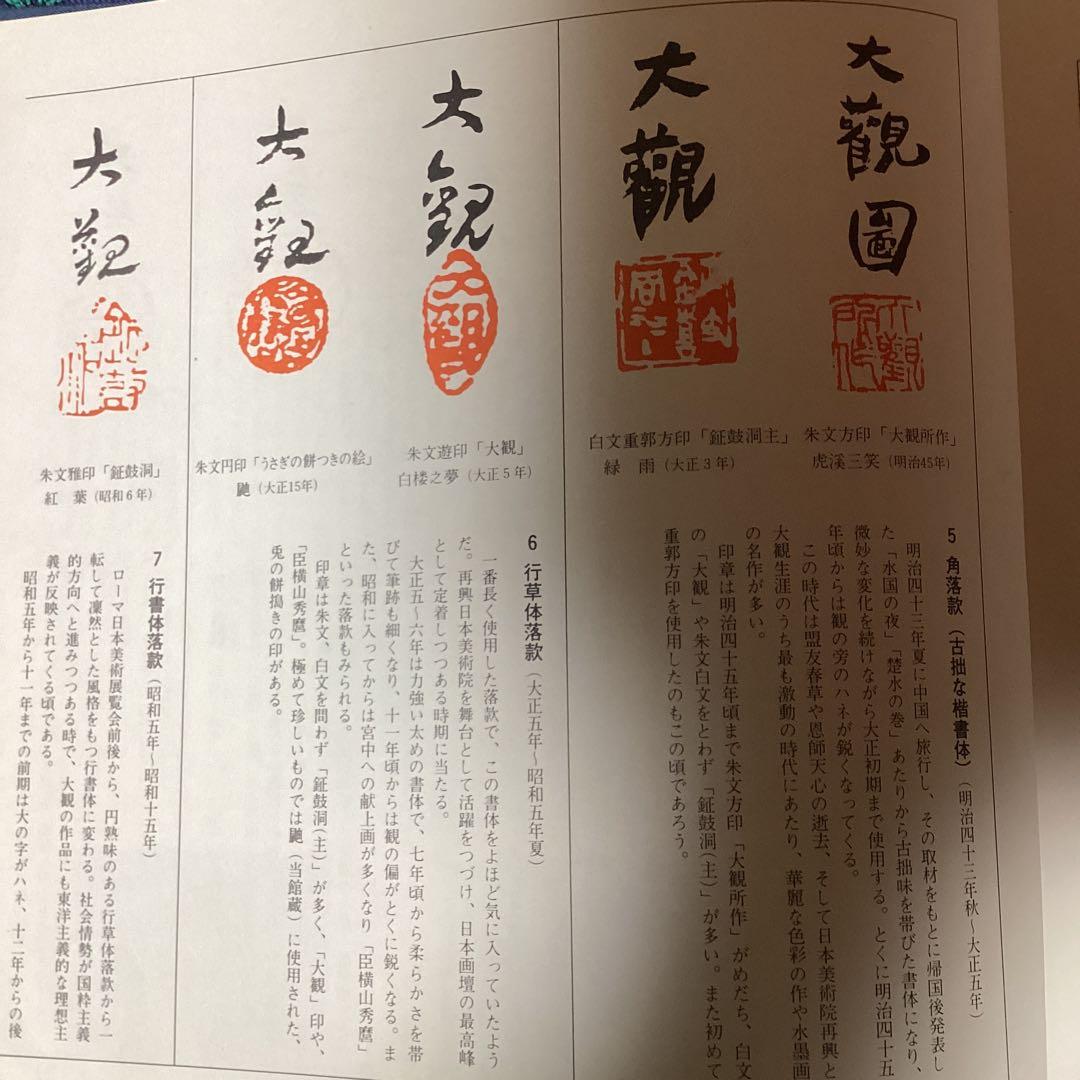 大觀圖
朱文方印「大観所作」
虎溪三笑(明治45年)
大觀
白文重郭方印「鉦鼓洞主」
緑　雨(大正3年)
5 角落款(古拙な楷書体)(明治四十三年秋～大正五年)
明治四十三年夏に中国へ旅行し、その取材をもとに帰国後発表し
た「水国の夜」「楚水の巻」あたりから古拙味を帯びた書体になり、
微妙な変化を続けながら大正初期まで使用する。とくに明治四十五
年頃からは観の旁のハネが鋭くなってくる。
この時代は盟友春草や恩師天心の逝去、そして日本美術院再興と
大観生涯のうち最も激動の時代にあたり、華麗な色彩の作や水墨画
の名作が多い。
印章は明治四十五年頃まで朱文方印「大観所作」がめだち、白文
の「大観」や朱文白文をとわず「鉦鼓洞(主)」が多い。また初めて
重郭方印を使用したのもこの頃であろう。
大觀
朱文遊印「大観」
白楼之夢(大正5年)
大觀
朱文円印「うさぎの餅つきの絵」
鼬(大正15年)
6 行草体落款(大正五年～昭和五年夏)
一番長く使用した落款で、この書体をよほど気に入っていたよう
だ。再興日本美術院を舞台として活躍をつづけ、日本画壇の最高峰
として定着しつつある時期に当たる。
大正五～六年は力強い太めの書体で、七年頃から柔らかさを帯
びて筆跡も細くなり、十一年頃からは観の偏がとくに鋭くなる。ま
た、昭和に入ってからは宮中への献上画が多くなり「臣横山秀麿」
といった落款もみられる。
印章は朱文、白文を問わず「鉦鼓洞(主)」が多く、「大観」印や、
「臣横山秀麿」。極めて珍しいものでは鼬(当館蔵)に使用された、
兎の餅搗きの印がある。
大觀
朱文雅印「鉦鼓洞」
紅　葉(昭和6年)
7 行書体落款(昭和五年～昭和十五年)
ローマ日本美術展覧会前後から、円熟味のある行草体落款から一
転して凜然とした風格をもつ行書体に変わる。社会情勢が国粋主義
的方向へと進みつつある時で、大観の作品にも東洋主義的な理想主
義が反映されてくる頃である。
昭和五年から十一年までの前期は大の字がハネ、十二年からの後